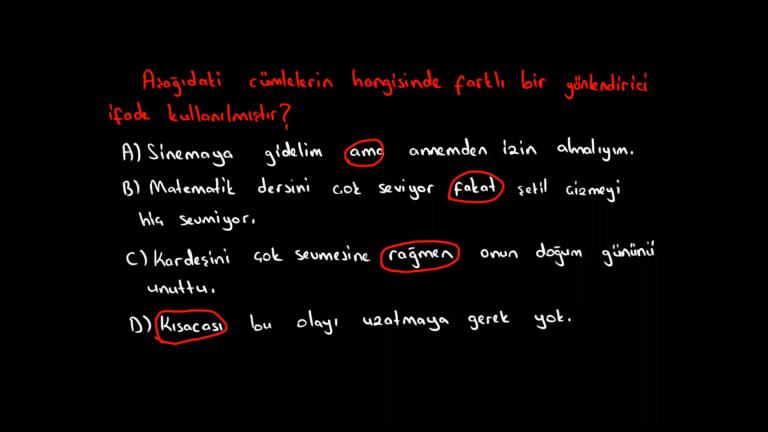 Aşağıdaki cümlelerin hangisinde farklı bir yönlendirici
ifade kullanılmıştır?
A) Sinemaya gidelim ama annemden izin almalıyım.
B) Matematik dersini çok seviyor fakat şekil çizmeyi
hiç sevmiyor.
C) Kardeşini çok sevmesine rağmen onun doğum gününü
unuttu.
D) Kısacası bu olayı uzatmaya gerek yok.